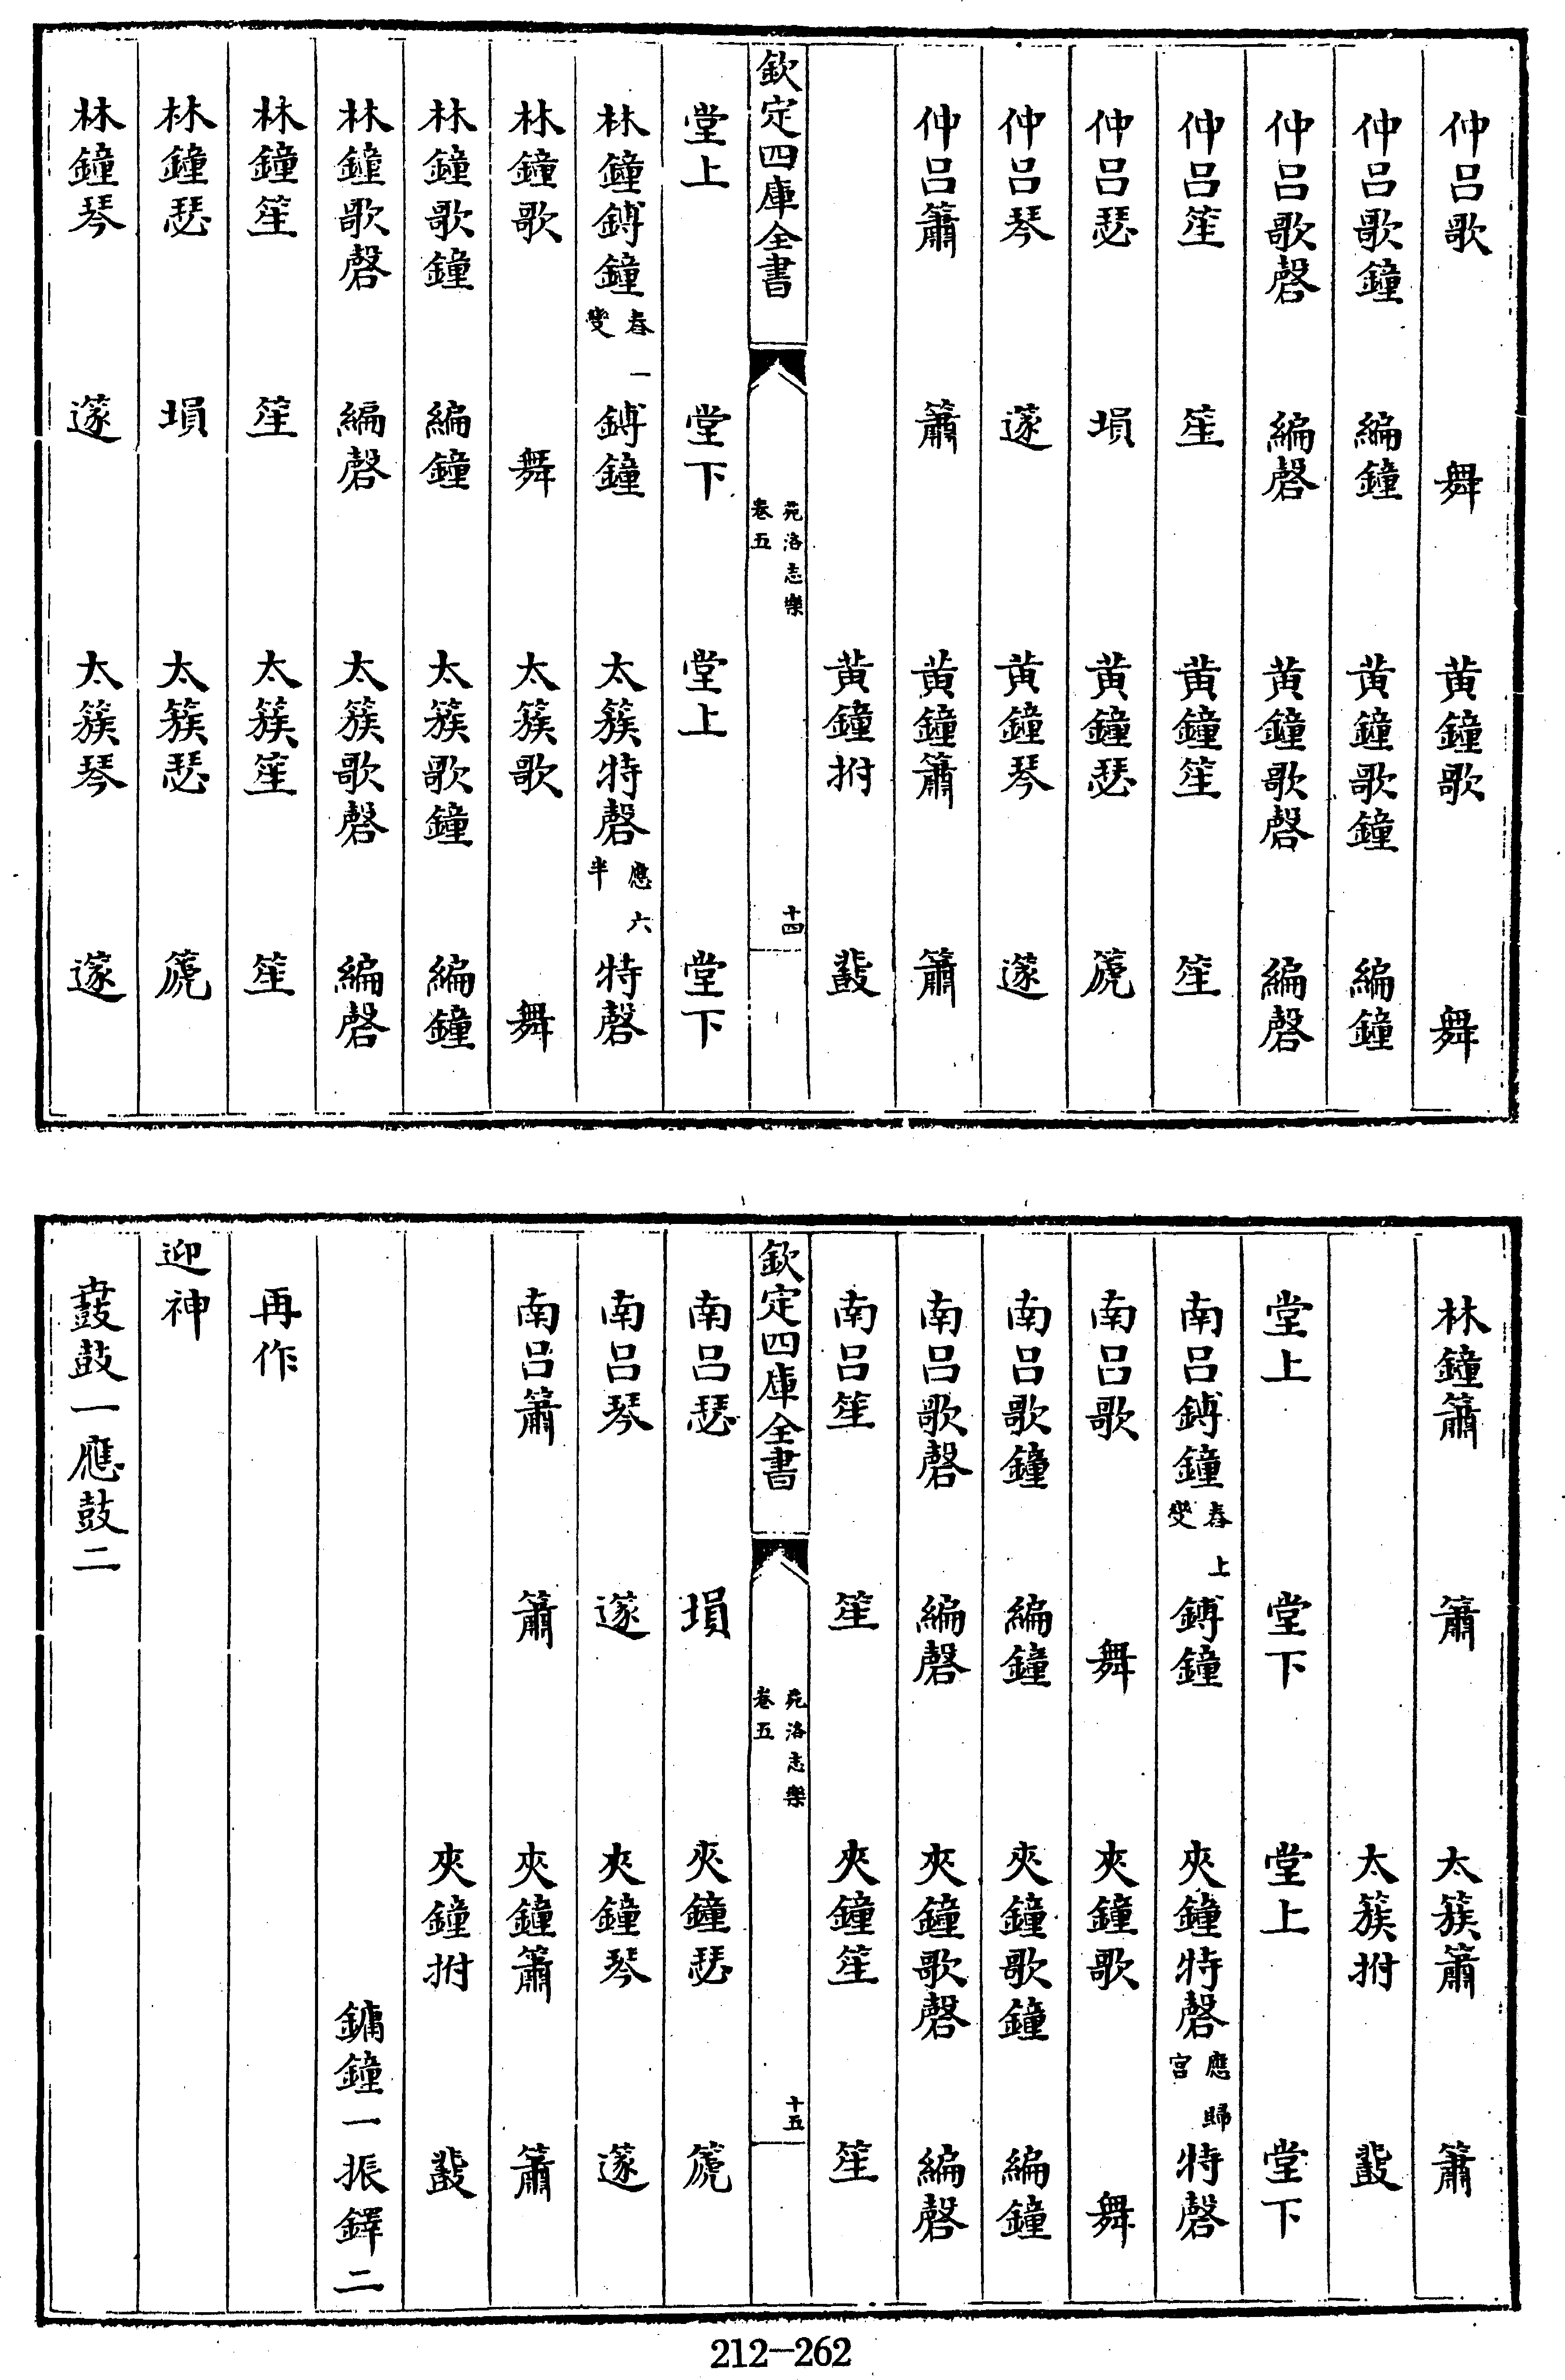 仲呂歌　舞　黃鐘歌　舞
仲呂歌鐘　編鐘　黃鐘歌鐘　編鐘
仲呂歌磬　編磬　黃鐘歌磬　編磬
仲呂笙　笙　黃鐘笙　笙
仲呂瑟　塤　黃鐘瑟　箎
仲呂琴　篴　黃鐘琴　篴
仲呂簫　簫　黃鐘簫　簫
黃鐘拊　鼗
欽定四庫全書　苑洛志樂　卷五　十四
堂上　堂下　堂上　堂下
林鐘鎛鐘舂一變　鎛鐘　太簇特磬應六半　特磬
林鐘歌　舞　太簇歌　舞
林鐘歌鐘　編鐘　太簇歌鐘　編鐘
林鐘歌磬　編磬　太簇歌磬　編磬
林鐘笙　笙　太簇笙　笙
林鐘瑟　塤　太簇瑟　箎
林鐘琴　篴　太簇琴　篴
林鐘簫　簫　太簇簫　簫
太簇拊　鼗
堂上　堂下　堂上　堂下
南呂鎛鐘舂上變　鎛鐘　夾鐘特磬應歸宮　特磬
南呂歌　舞　夾鐘歌　舞
南呂歌鐘　編鐘　夾鐘歌鐘　編鐘
南呂歌磬　編磬　夾鐘歌磬　編磬
南呂笙　笙　夾鐘笙　笙
欽定四庫全書　苑洛志樂　卷五　十五
南呂瑟　塤　夾鐘瑟　箎
南呂琴　篴　夾鐘琴　篴
南呂簫　簫　夾鐘簫　簫
夾鐘拊　鼗
鏞鐘一振鐸二
再作
迎神
鼖鼓一應鼓二
212-262